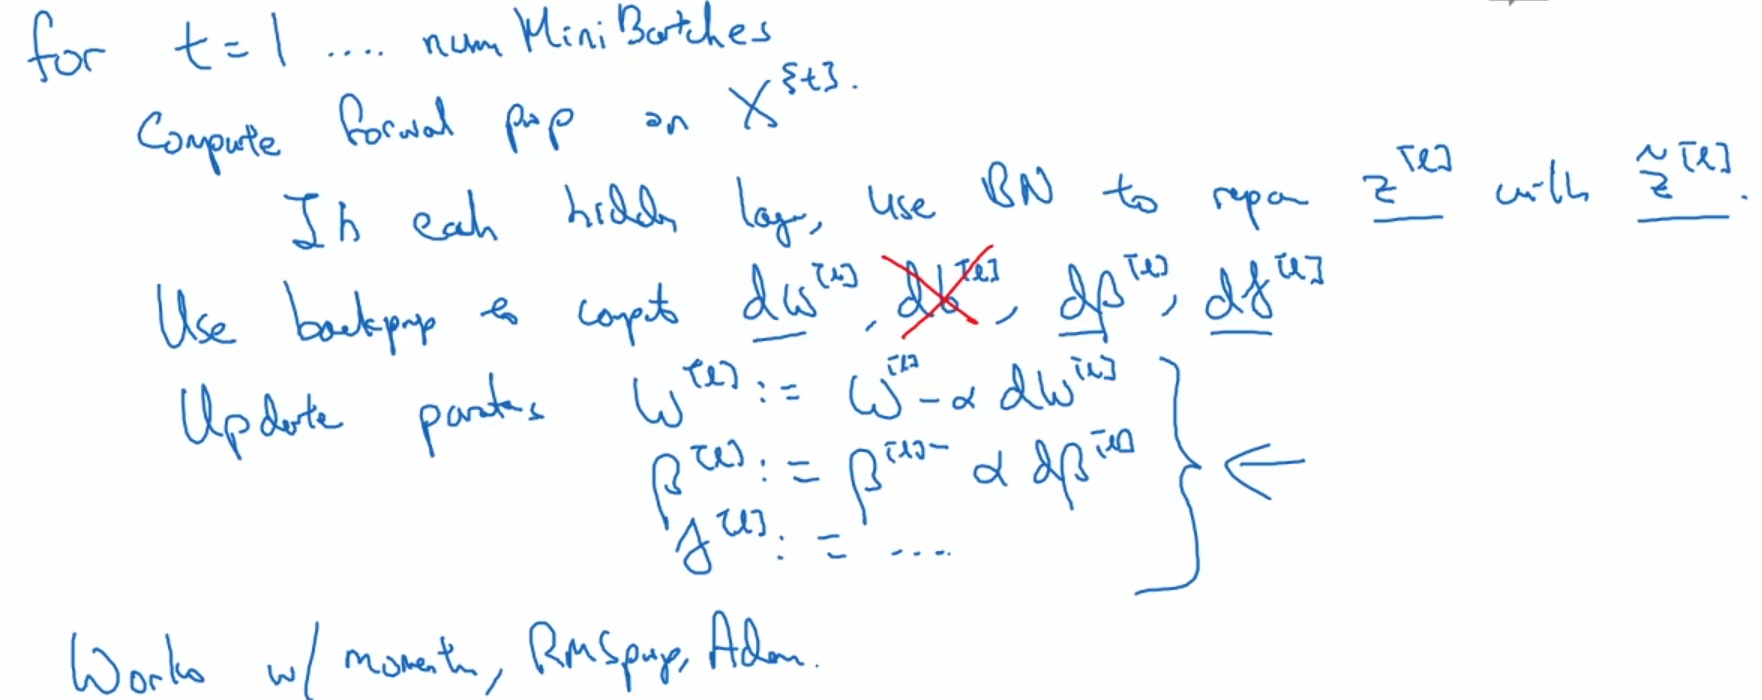 for t = 1 .... num MiniBatches
Compute forwal prop on X^{t}.
In eah hidden lay, use BN to repan z^[l] with z̃^[l].
Use backprop to compt dw^[l], db^[l], dβ^[l], dγ^[l]
Update parates W^[l] := W^[l] - α dW^[l]
β^[l] := β^[l] - α dβ^[l]
γ^[l] := ....
←
Works w/ momentn, RMSprop, Adam.